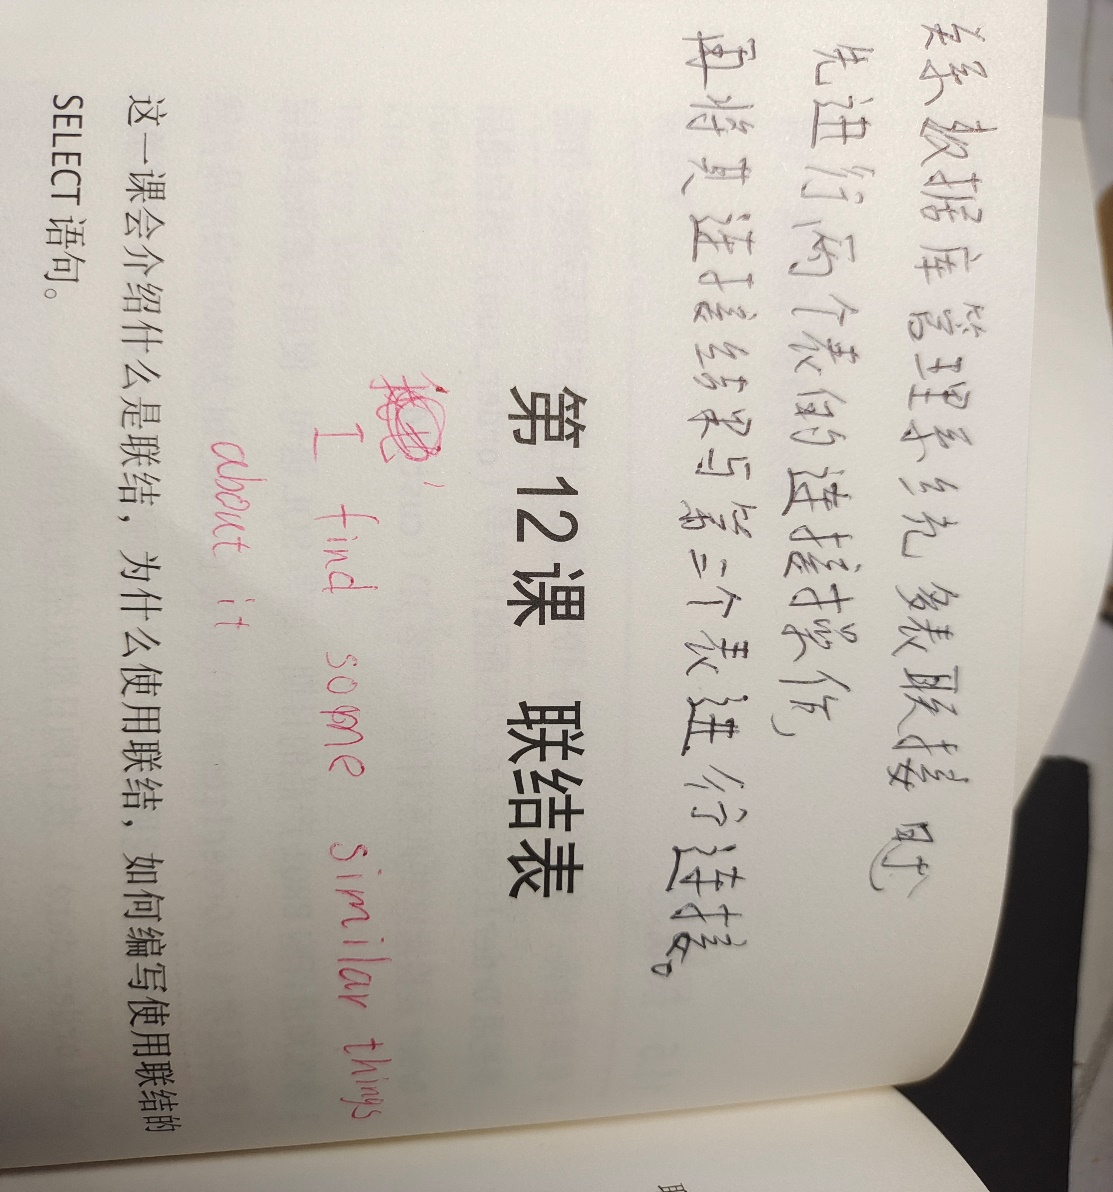 关系数据库管理系统多表联接时，
先进行两个表的连接操作，
再将其连接结果与第三个表进行连接。
第12课 联结表
I find some similar things
about it
这一课会介绍什么是联结，为什么使用联结，如何编写使用联结的
SELECT 语句。